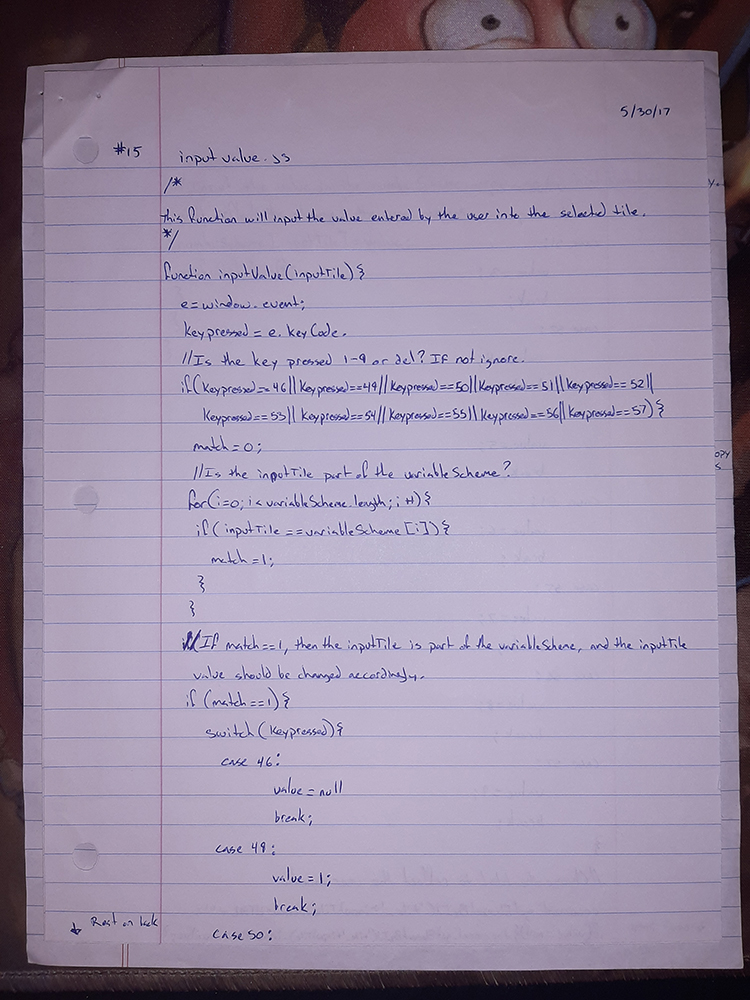 5/30/17
#15 inputvalue.js
/*
this function will input the value entered by the user into the selected tile.
*/
function inputValue(inputTile){
e=window.event;
keypressed = e.keyCode.
//Is the key pressed 1-9 or del? If not ignore.
if(keypressed==46||keypressed==49||keypressed==50||keypressed==51||keypressed==52||
keypressed==53||keypressed==54||keypressed==55||keypressed==56||keypressed==57){
match=0;
//Is the inputTile part of the variableScheme?
for(i=0; i<variableScheme.length; i++){
if(inputTile==variableScheme[i]){
match=1;
}
}
//If match==1, then the inputTile is part of the variableScheme, and the inputTile
value should be changed accordingly.
if(match==1){
switch(keypressed){
case 46:
value=null
break;
case 49:
value=1;
break;
↓ Rest on back
case 50: